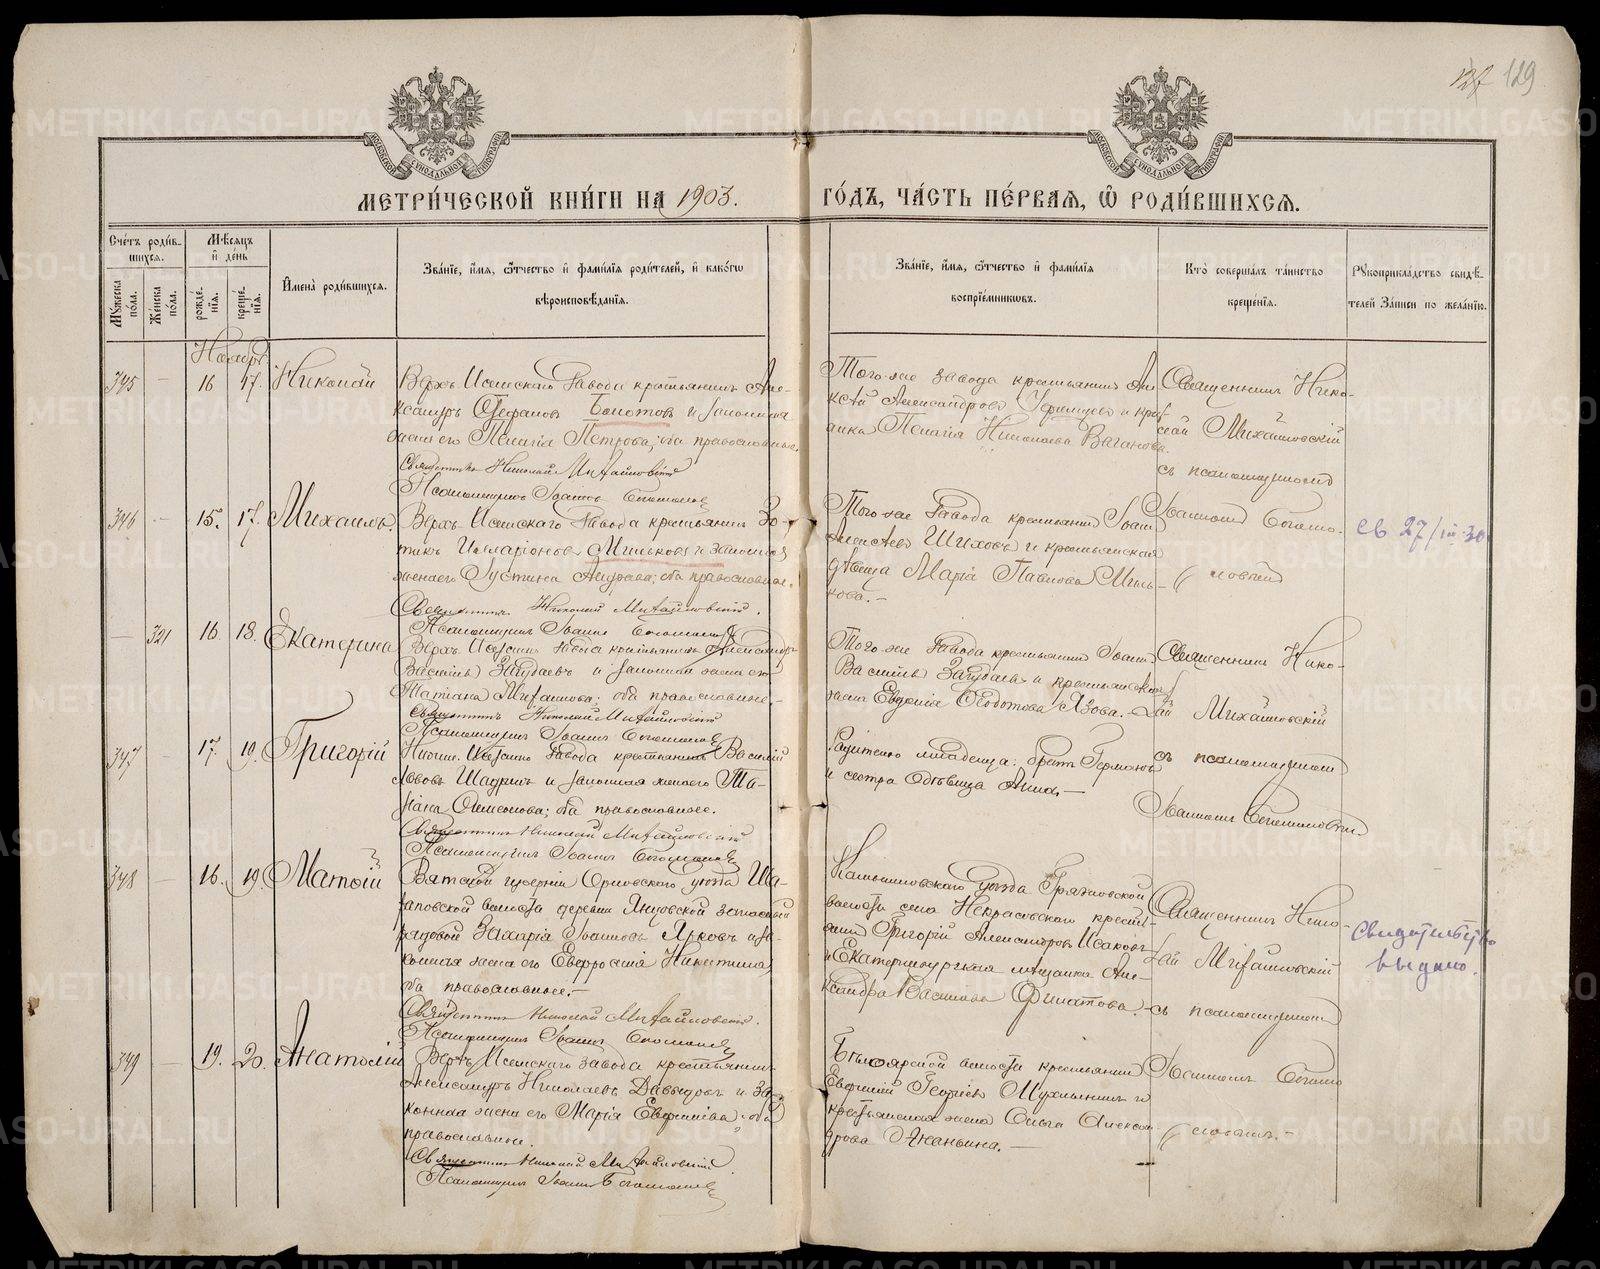 127 129
МОСКОВСКОЙ СѴНОДАЛЬНОЙ ТИПОГРАФІИ
МОСКОВСКОЙ СѴНОДАЛЬНОЙ ТИПОГРАФІИ
МЕТРИ́ЧЕСКОЙ КНИ́ГИ НА 1903. ГО́ДЪ, ЧА́СТЬ ПЕ́РВАЯ, Ѽ РОДИ́ВШИХСЯ.
Сче́тъ роди́вшихся.
Му́жеска по́ла.
Же́нска по́ла.
Мѣ́сяцъ и де́нь
рожде́нїя.
креще́нїя.
И҆мена̀ роди́вшихся.
Зва́нїе, и҆́мя, ѻ҆́тчество и҆ фами́лїя роди́телей, и҆ како́гѡ
вѣроисповѣ́данїя.
Зва́нїе, и҆́мя, ѻ҆́тчество и҆ фами́лїя
воспрїе́мниковъ.
Кто̀ соверша́лъ та́инство
креще́нїя.
Рꙋкоприкла́дство свидѣ́телей за́писи по жела́нїю.
Ноябрь
345 — 16 17. Николай
Верхъ Исетскаго Завода крестьянинъ Але-
ксандръ Стефановъ Болотовъ и законная
жена его Пелагія Петрова; оба православные.
Священникъ Николай Михайловскій
Псаломщикъ Іоаннъ Богомоловъ
Того-же завода крестьянинъ Але-
ксѣй Александровъ Уфимцевъ и крес-
янка Пелагія Николаева Ваганова.
Священникъ Нико-
лай Михайловскій
съ псаломщикомъ
346 — 15. 17. Михаилъ.
Верхъ Исетскаго Завода крестьянинъ Зо-
тикъ Илларіоновъ Мильковъ и законная
жена его Іустина Андреева; оба православные.
Священникъ Николай Михайловскій.
Псаломщикъ Іоаннъ Богомоловъ
Того-же Завода крестьянинъ Іоаннъ
Алексѣевъ Шиховъ и крестьянская
дѣвица Марія Павлова Миль-
кова. —
Іоанномъ Богомо-
ловымъ
Св 27/III-30
— 321 16. 18. Екатерина
Верхъ Исетскаго Завода крестьянинъ Александръ
Васильевъ и законная жена его
Татіана Михайлова; оба православные.
Священникъ Николай Михайловскій
Псаломщикъ Іоаннъ Богомоловъ
Того-же Завода крестьянинъ Іоаннъ
Васильевъ и крестьянская
жена Евдокія Ѳеодотова Язова. —
Священникъ Нико-
лай Михайловскій
347 — 17. 19. Григорій
Исетскаго Завода крестьянинъ Василій
Львовъ Шадринъ и законная жена его Та-
тіана Симеонова; оба православные.
Священникъ Николай Михайловскій
Псаломщикъ Іоаннъ Богомоловъ
Родителю младенца: братъ Германъ
и сестра дѣвица Анна. —
съ псаломщикомъ
Іоанномъ Богомоловымъ.
348 — 16. 19. Матѳій
Вятской губерніи Орловскаго уѣзда Ша-
лаповской волости деревни запасный
рядовой Захарія Іоанновъ Ярковъ и за-
конная жена его Евфросинія Никитина,
оба православные. —
Священникъ Николай Михайловскій.
Псаломщикъ Іоаннъ Богомоловъ
Камышловскаго уѣзда Грязновской
волости села Некрасовскаго крестья-
нинъ Григорій Александровъ Исаковъ
и Екатеринбургская мѣщанка Але-
ксандра Васильева Филатова.
Священникъ Нико-
лай Михайловскій
съ псаломщикомъ
Свидѣтельство
выдано.
349 — 19. 20. Анатолій
Верхъ Исетскаго завода крестьянинъ
Александръ Николаевъ Давыдовъ и за-
конная жена его Марія Евфиміева; оба
православные.
Священникъ Николай Михайловскій.
Псаломщикъ Іоаннъ Богомоловъ
Бѣлоярской волости крестьянинъ
Евфимій Георгіевъ Мухлынинъ и
крестьянская жена Ольга Алексан-
дрова Ананьина. —
Іоанномъ Богомо-
ловымъ. —
METRIKI.GASO-URAL.RU